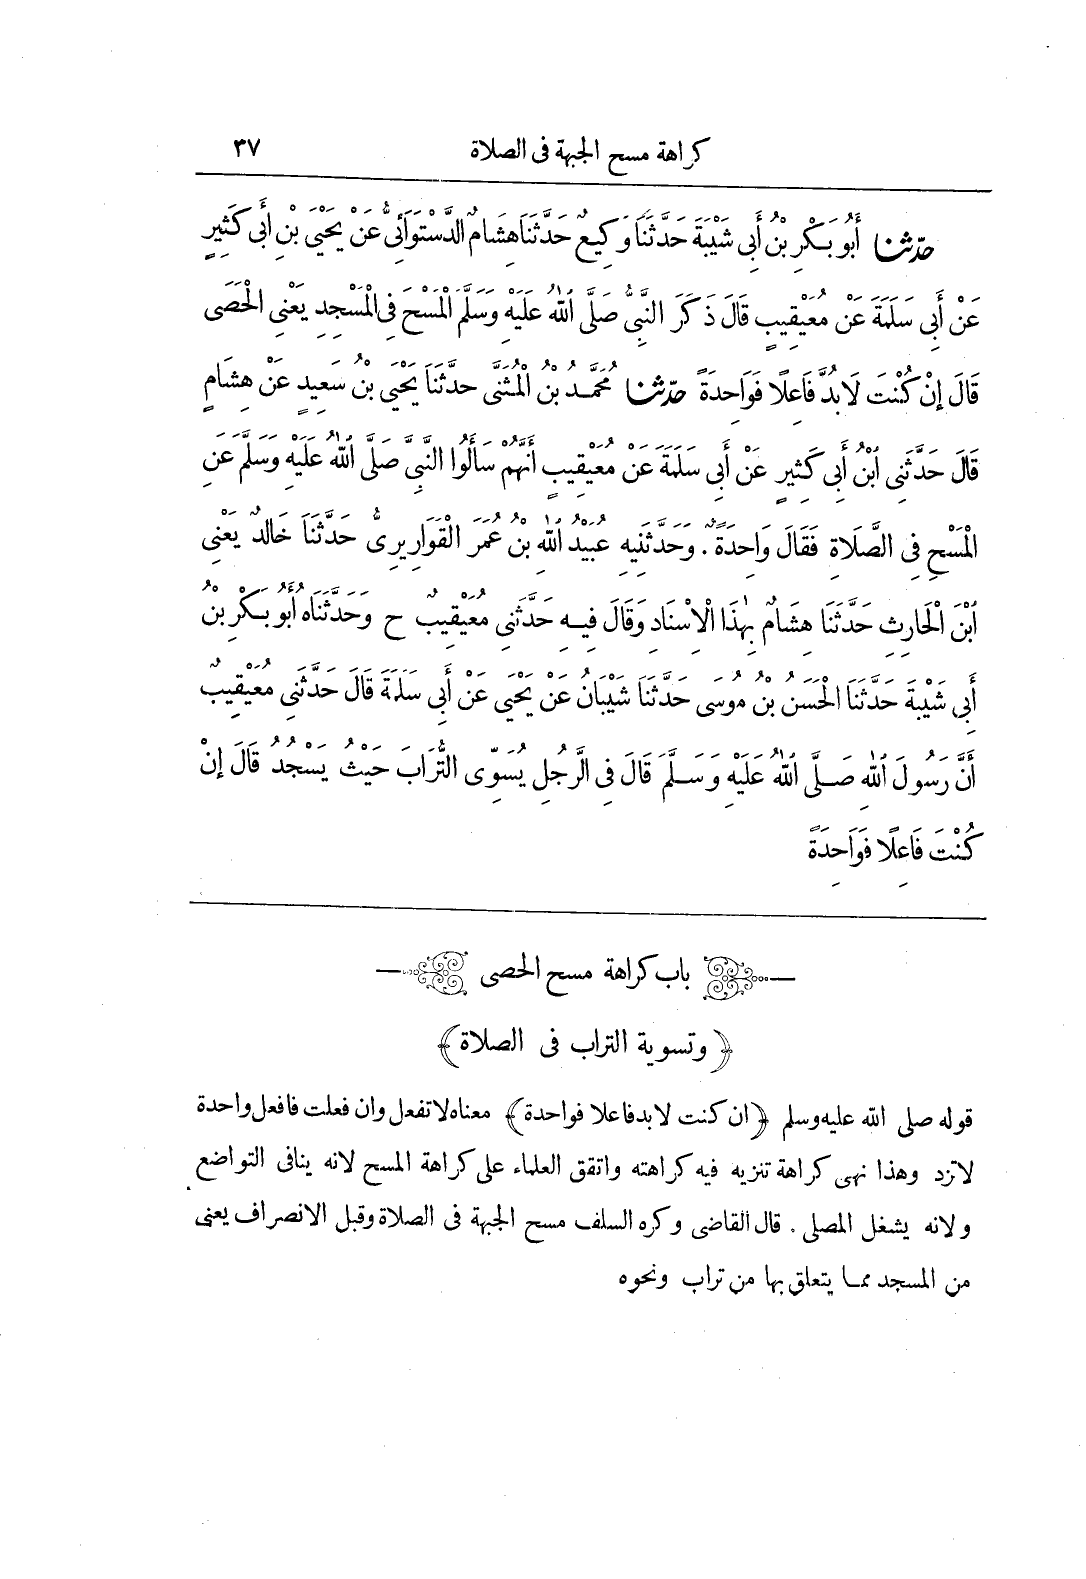 كراهة مسح الجبهة فى الصلاة ٣٧
حدّثنا أَبُو بَكْرِ بْنُ أَبِى شَيْبَةَ حَدَّثَنَا وَكِيعٌ حَدَّثَنَا هِشَامٌ الدَّسْتَوَائِىُّ عَنْ يَحْيَى بْنِ أَبِى كَثِيرٍ
عَنْ أَبِى سَلَمَةَ عَنْ مُعَيْقِيبٍ قَالَ ذَكَرَ النَّبِىُّ صَلَّى اللهُ عَلَيْهِ وَسَلَّمَ الْمَسْحَ فِى الْمَسْجِدِ يَعْنِى الْحَصَى
قَالَ إِنْ كُنْتَ لَابُدَّ فَاعِلًا فَوَاحِدَةً حدّثنا مُحَمَّدُ بْنُ الْمُثَنَّى حَدَّثَنَا يَحْيَى بْنُ سَعِيدٍ عَنْ هِشَامٍ
قَالَ حَدَّثَنِى ابْنُ أَبِى كَثِيرٍ عَنْ أَبِى سَلَمَةَ عَنْ مُعَيْقِيبٍ أَنَّهُمْ سَأَلُوا النَّبِىَّ صَلَّى اللهُ عَلَيْهِ وَسَلَّمَ عَنِ
الْمَسْحِ فِى الصَّلَاةِ فَقَالَ وَاحِدَةً . وَحَدَّثَنِيهِ عُبَيْدُ اللهِ بْنُ عُمَرَ الْقَوَارِيرِىُّ حَدَّثَنَا خَالِدٌ يَعْنِى
ابْنَ الْحَارِثِ حَدَّثَنَا هِشَامٌ بِهٰذَا الْإِسْنَادِ وَقَالَ فِيهِ حَدَّثَنِى مُعَيْقِيبٌ ح وَحَدَّثَنَاهُ أَبُو بَكْرِ بْنُ
أَبِى شَيْبَةَ حَدَّثَنَا الْحَسَنُ بْنُ مُوسَى حَدَّثَنَا شَيْبَانُ عَنْ يَحْيَى عَنْ أَبِى سَلَمَةَ قَالَ حَدَّثَنِى مُعَيْقِيبٌ
أَنَّ رَسُولَ اللهِ صَلَّى اللهُ عَلَيْهِ وَسَلَّمَ قَالَ فِى الرَّجُلِ يُسَوِّى التُّرَابَ حَيْثُ يَسْجُدُ قَالَ إِنْ
كُنْتَ فَاعِلًا فَوَاحِدَةً
باب كراهة مسح الحصى
﴿ وتسوية التراب فى الصلاة﴾
قوله صلى الله عليه وسلم ﴿ان كنت لابد فاعلا فواحدة﴾ معناه لا تفعل وان فعلت فافعل واحدة
لاتزد وهذا نهى كراهة تنزيه فيه كراهته واتفق العلماء على كراهة المسح لانه ينافى التواضع
ولانه يشغل المصلى . قال القاضى وكره السلف مسح الجبهة فى الصلاة وقبل الانصراف يعنى
من المسجد مما يتعلق بها من تراب ونحوه